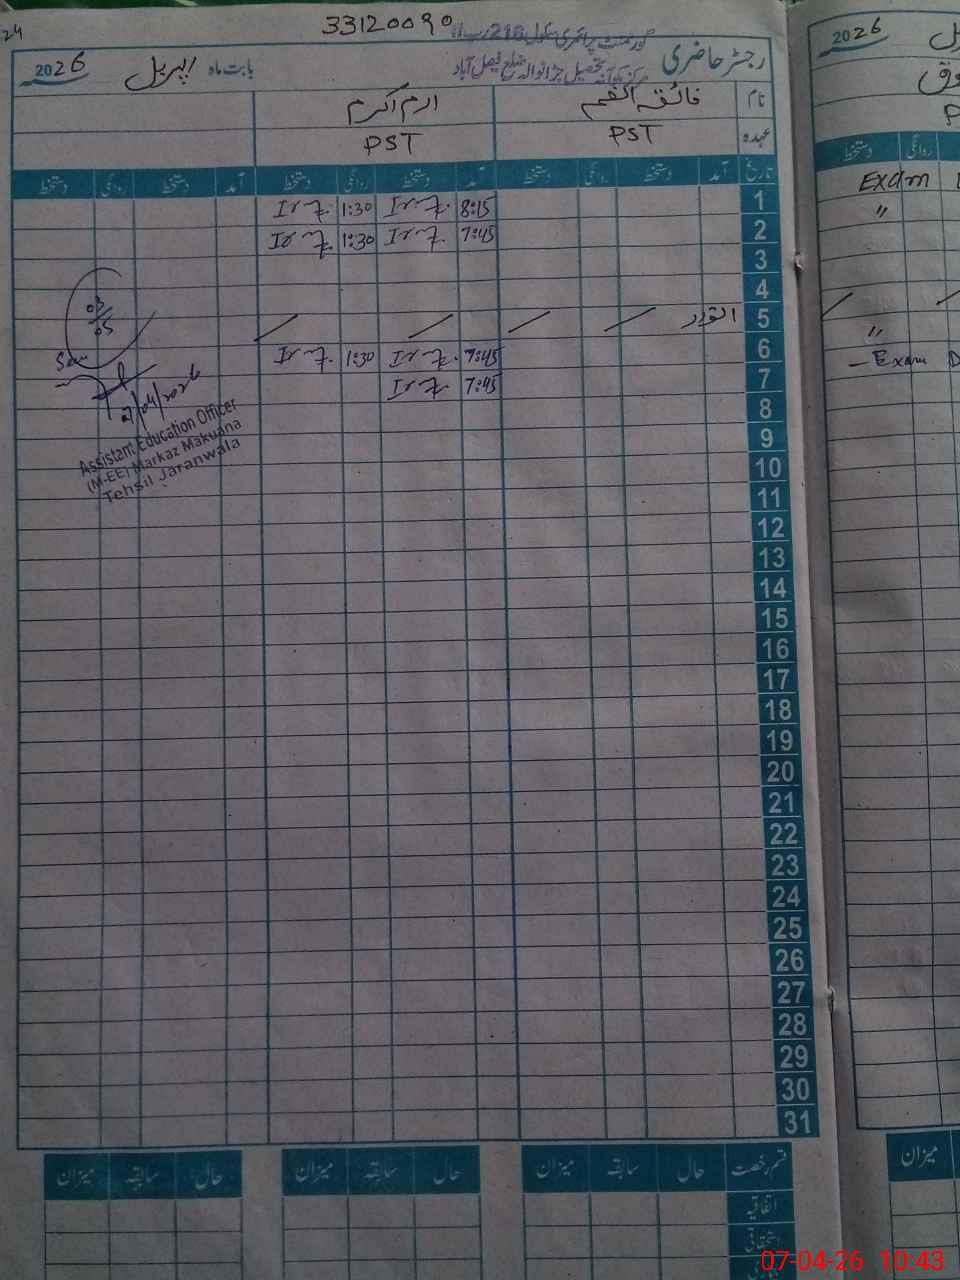 24
33120090
گورنمنٹ پرائمری سکول 216 رب II
رجسٹر حاضری مرکز مکوآنہ تحصیل جڑانوالہ ضلع فیصل آباد بابت ماہ اپریل 2026
نام فائقہ القمر ارم اکرم
عہدہ PST PST
تاریخ آمد دستخط روانگی دستخط آمد دستخط روانگی دستخط آمد دستخط روانگی دستخط
1 8:15 1:30
2 7:45 1:30
3
4
5 اتوار
6 7:45 1:30
7 7:45
8
9
10
11
12
13
14
15
16
17
18
19
20
21
22
23
24
25
26
27
28
29
30
31
03/05
7/04/2026
Assistant Education Officer
(M-EE) Markaz Makuana
Tehsil Jaranwala
قسم رخصت حال سابقہ میزان حال سابقہ میزان حال سابقہ میزان
اتفاقیہ
استحقاقی
2026
روانگی دستخط
Exam
"
"
Exam
میزان
07-04-26 10:43